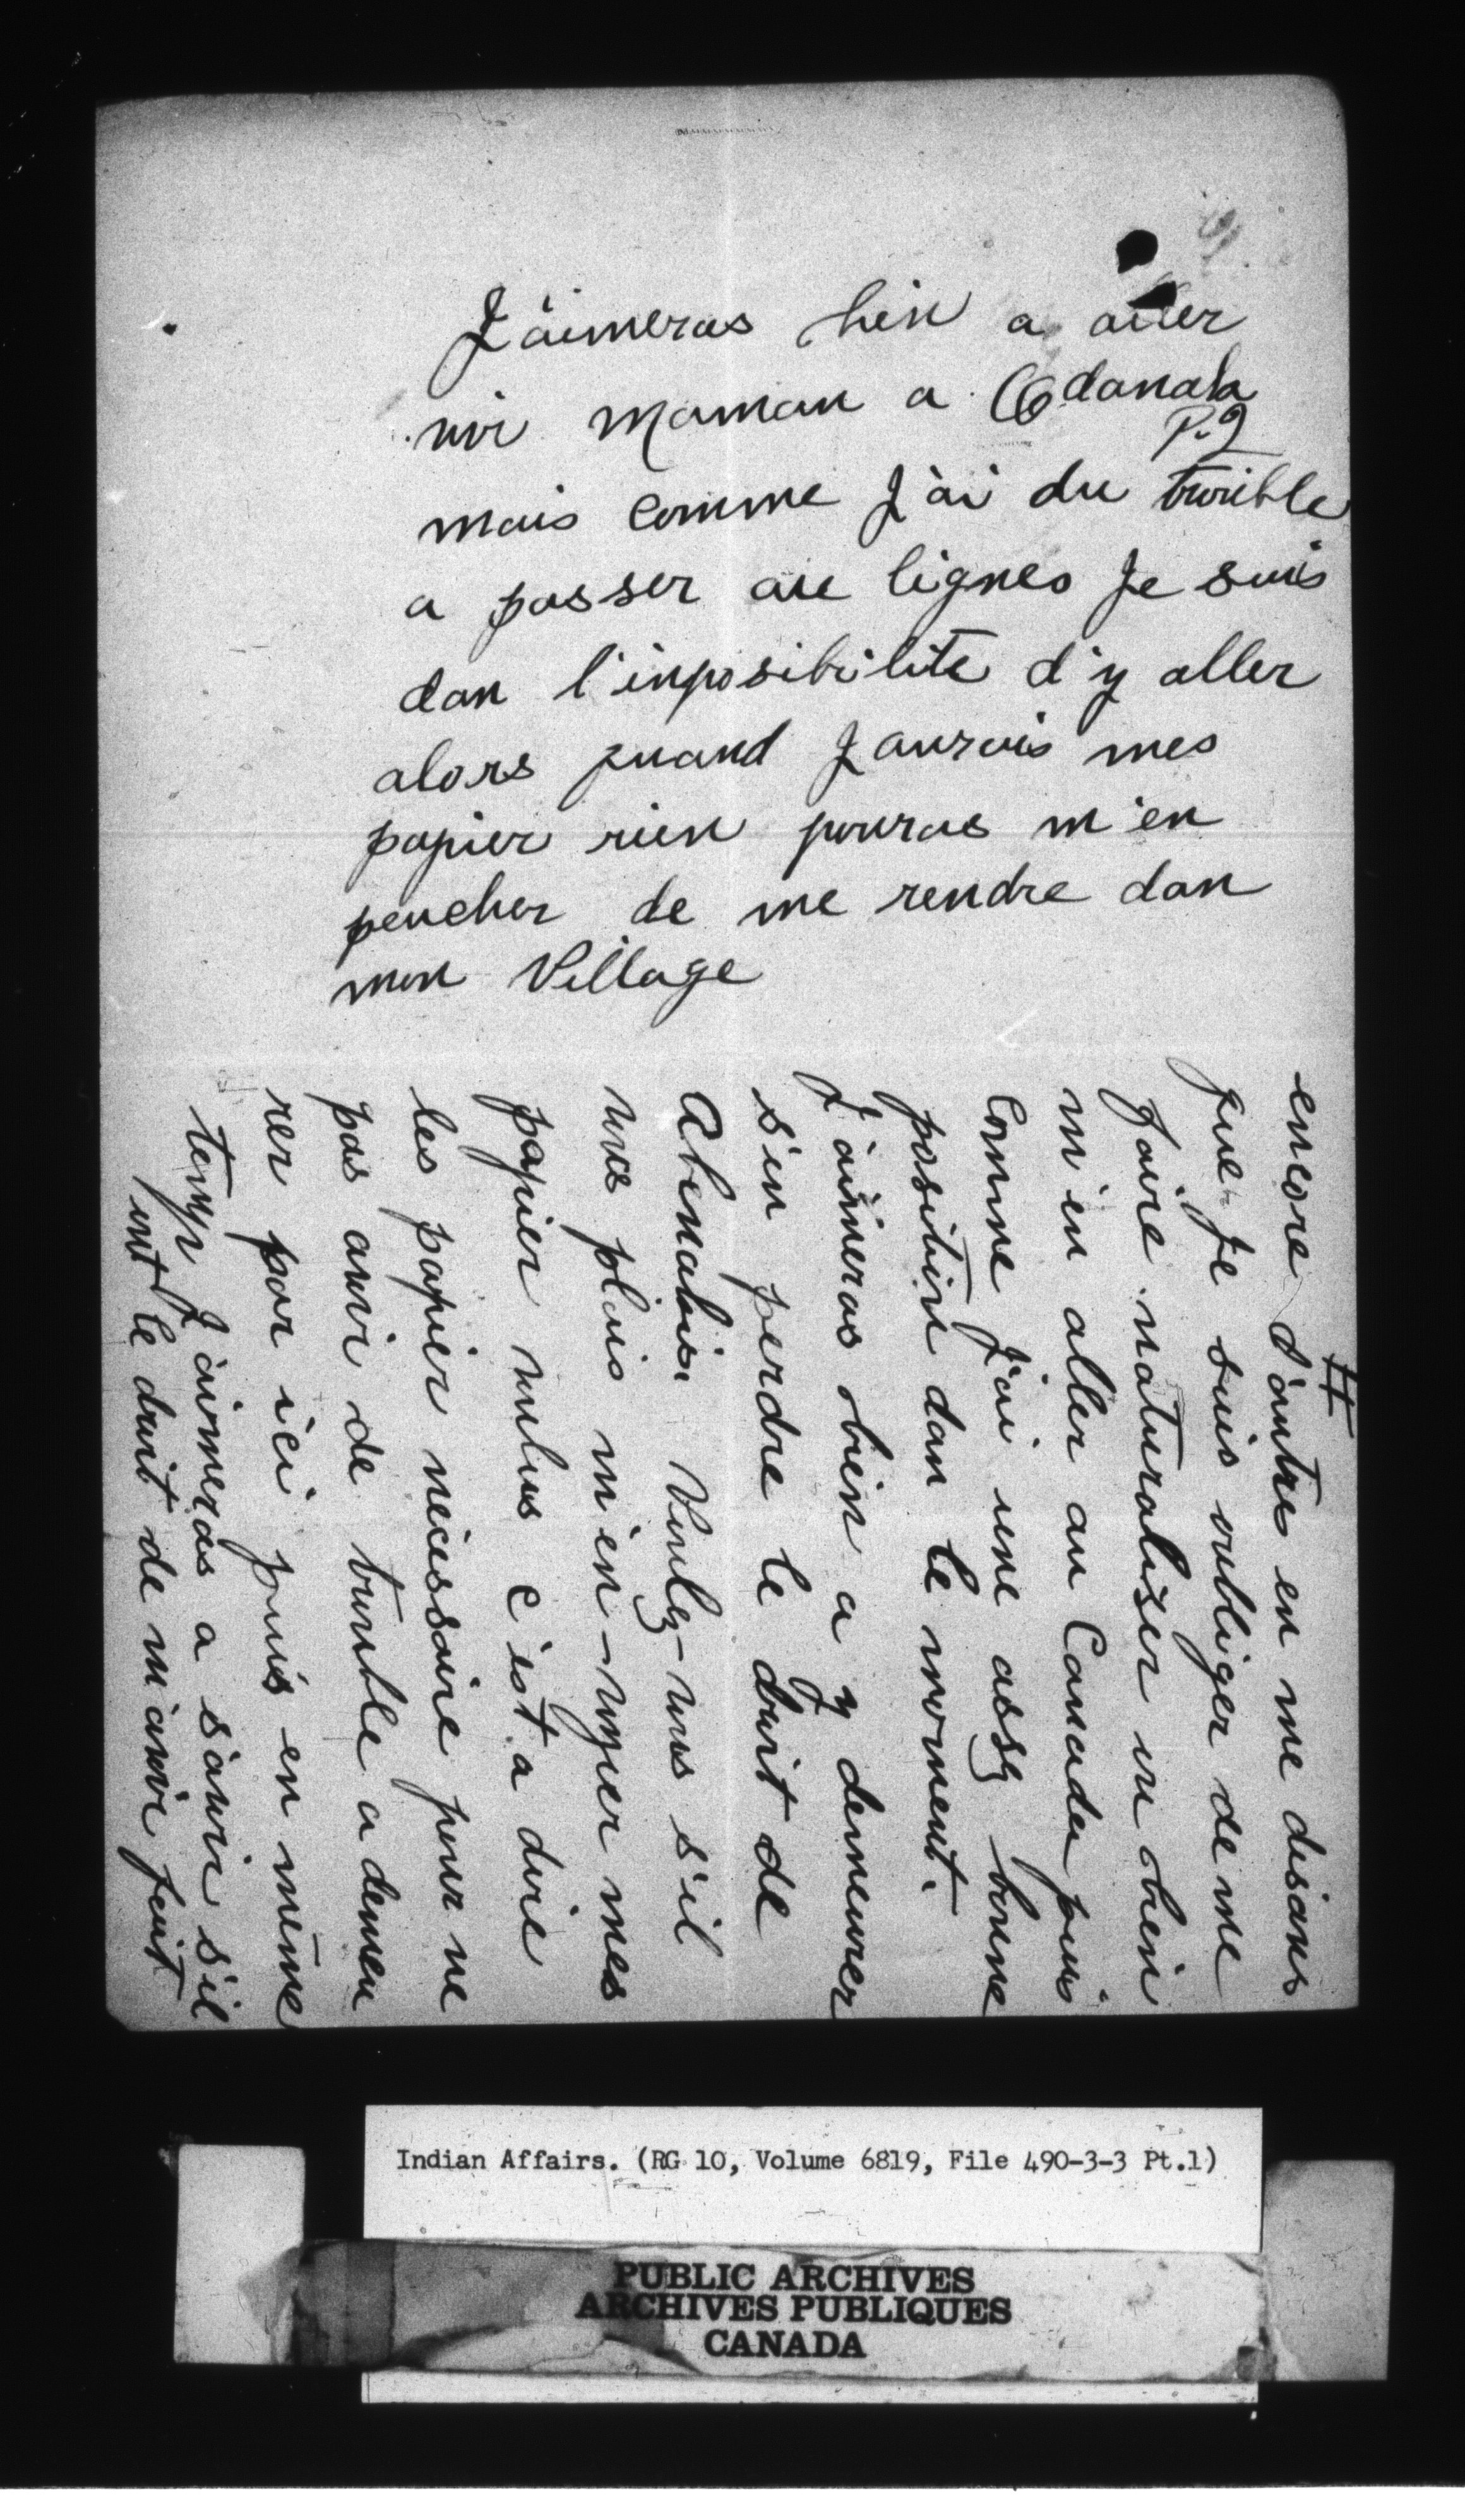 J'aimeras bien a aller
voir maman a Odanak
P.Q
mais comme J'ai du trouible
a passer au lignes Je suis
dan l'inposibilite d'y aller
alors quand J aurais mes
papier rien pouras m'en
pencher de me rendre dan
mon Village
#
encore d'autre en me disans
que Je suis oubliger de me
faire naturaliser ou bien
m'en aller au Canada puis
comme J'ai une assez bonne
position dan le moment.
J'aimeras bien a y demeurer
s'en perdre le droit de
Abenakis. Voulez-vous s'il
vous plais m'en-voyer mes
papier voulus c'est a dire
les papier nécessaire pour ne
pas avoir de trouble a demeu
rer par ici puis en même
temp J'aimeras a savoir s'il
ont le droit de m'avoir fait
Indian Affairs. (RG 10, Volume 6819, File 490-3-3 Pt.1)
PUBLIC ARCHIVES
ARCHIVES PUBLIQUES
CANADA